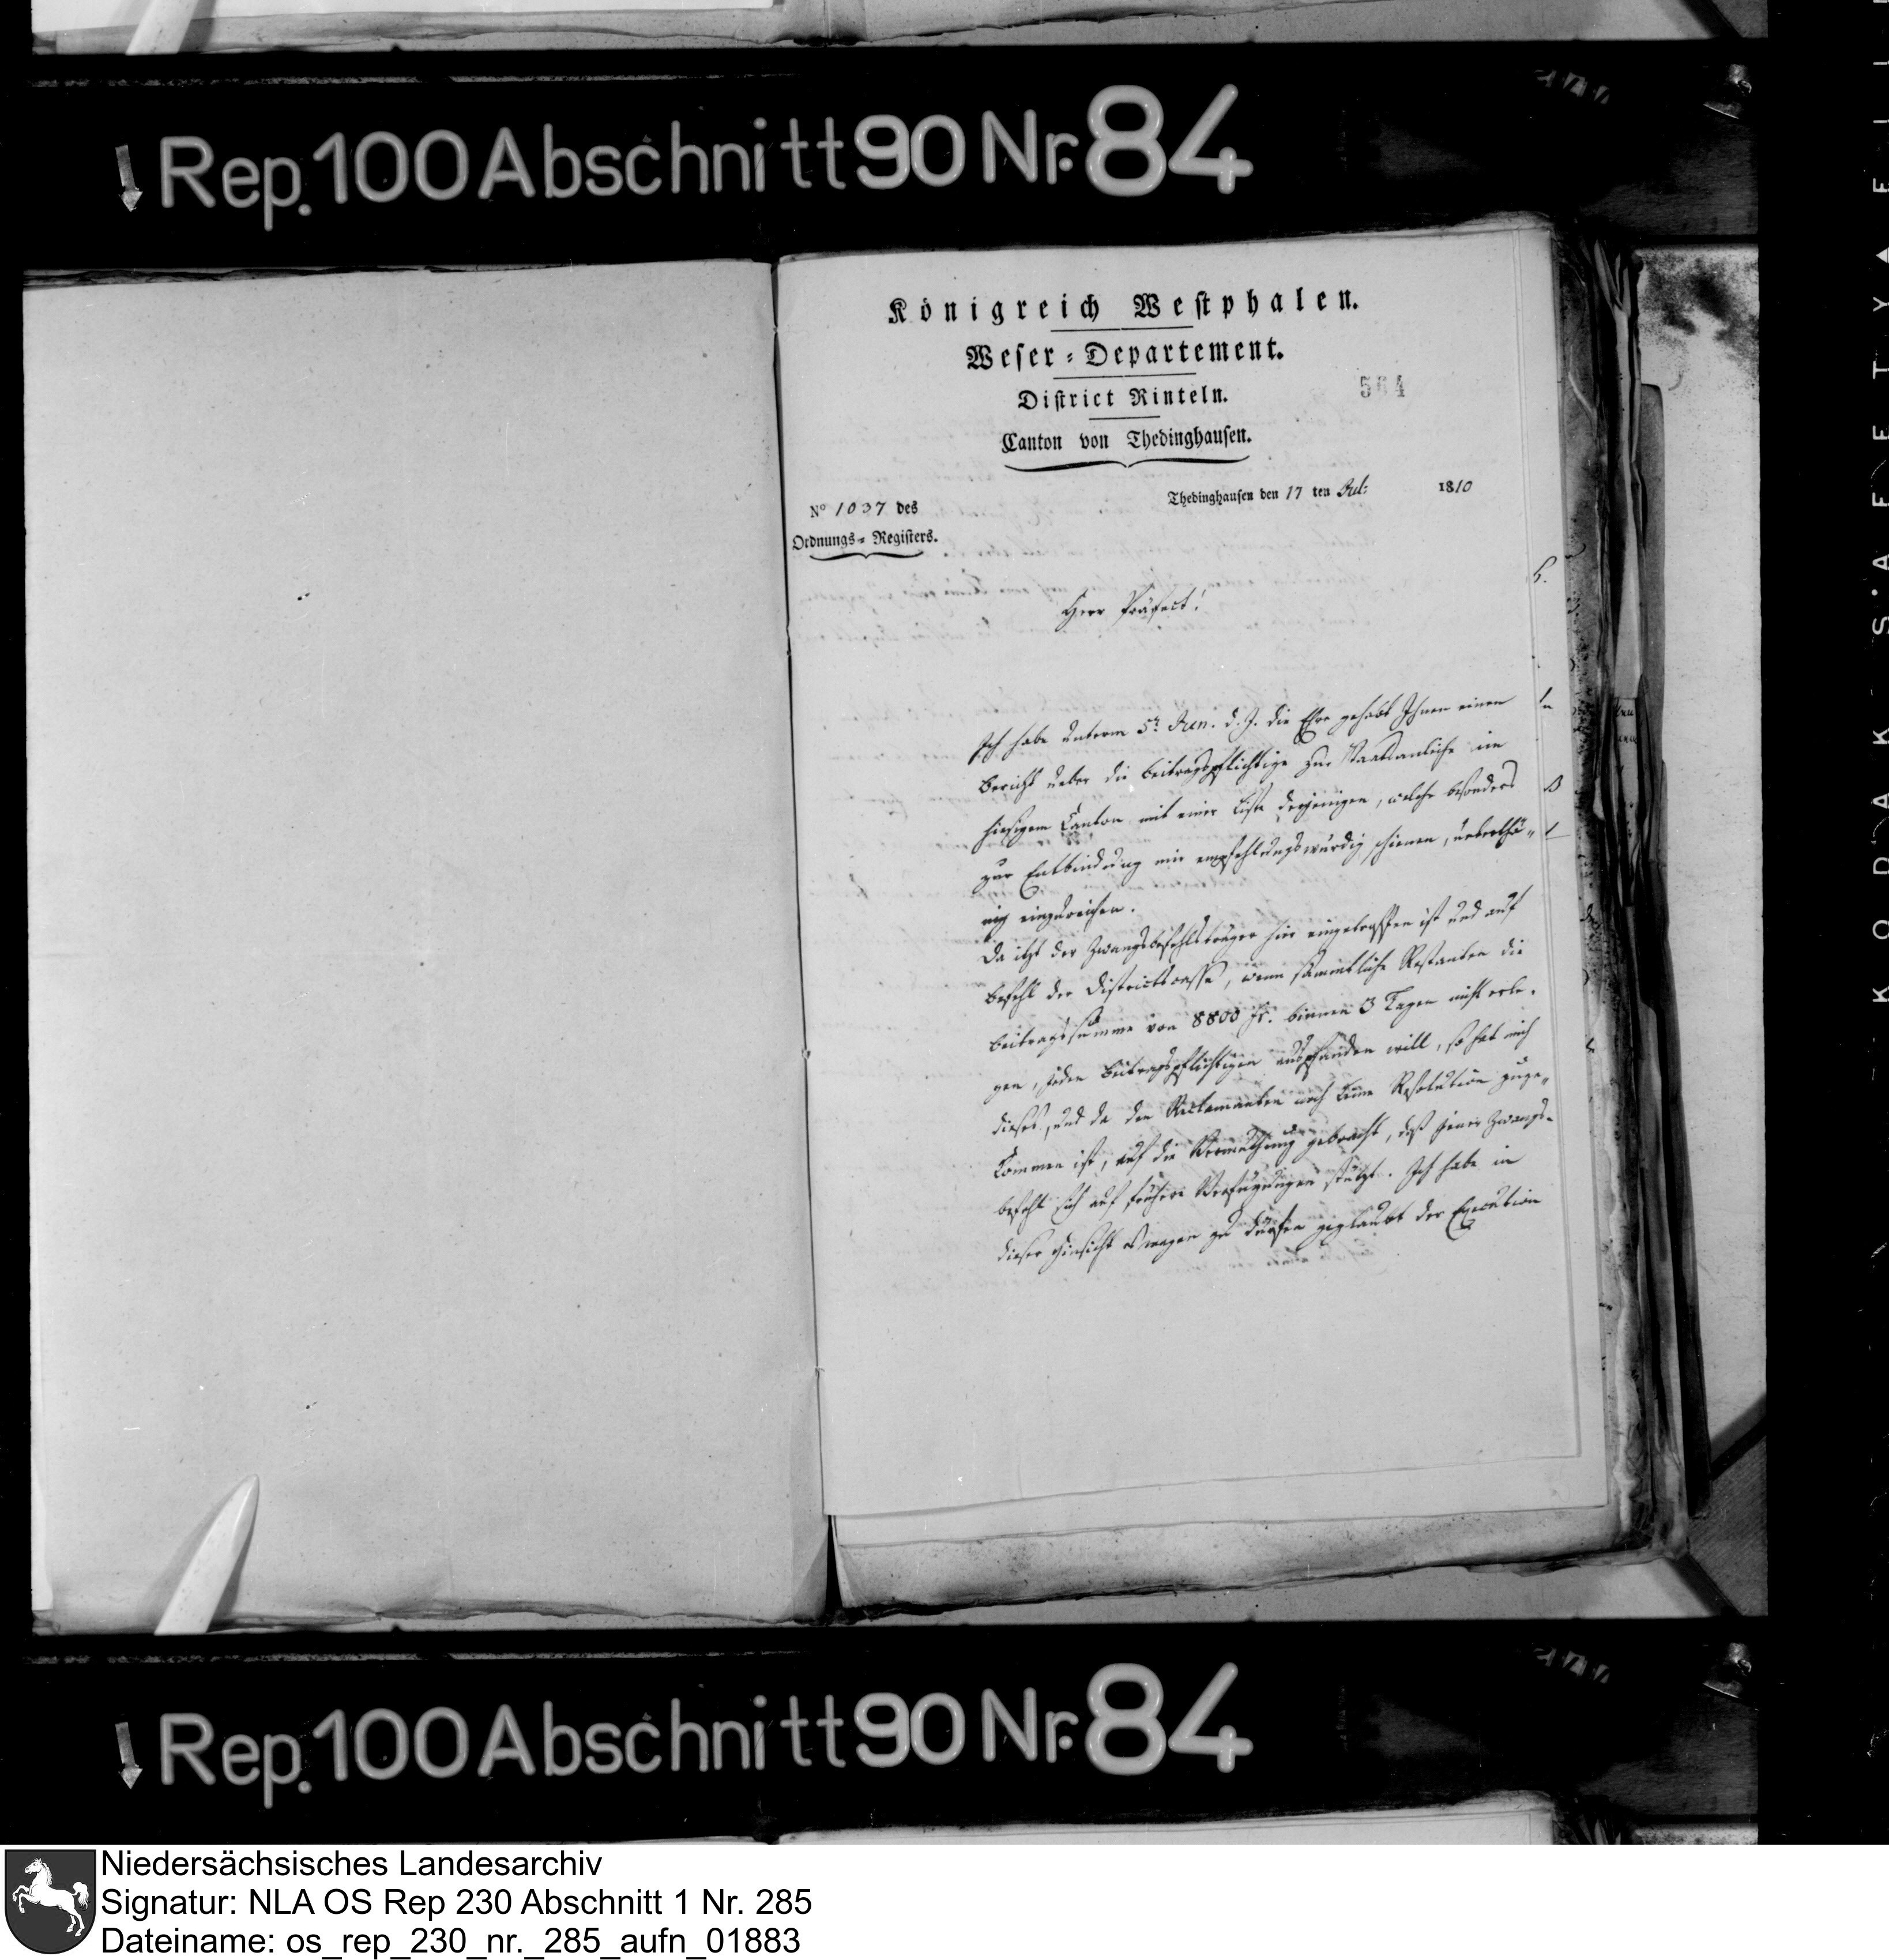 Rep. 100 Abschnitt 90 Nr. 84
Königreich Westphalen.
Weser-Departement.
564
District Rinteln.
Canton von Thedinghausen.
Thedinghausen den 17 ten Jul: 1810
No 1037 des
Ordnungs-Registers.
Herr Präfect!
Ich habe unterm 5t Jun. d. J. die Ehre gehabt Ihnen einen
Bericht ueber die Beitragspflichtige zur Staatsanleihe im
hiesigem Canton mit einer Liste derjenigen, welche besonders
zur Entbindung mir empfehlungswürdig schienen, unterthä-
nig einzureichen.
Da itzt der Zwangsbefehlsträger hier eingetroffen ist und auf
Befehl der Districtscasse, wenn sämmtliche Restanten die
Beitragssumme von 8800 fr. binnen 3 Tagen nicht erle-
gen, jeden Beitragspflichtigen auspfänden will, so hat mich
dieses, und da den Reclamanten noch keine Resolution zuge-
kommen ist, auf die Vermuthung gebracht, daß jener Zwangs-
befehl sich auf frühere Verfügungen stützt. Ich habe in
dieser Hinsicht es wagen zu dürfen geglaubt der Execution
KODAK SAFETY
Rep. 100 Abschnitt 90 Nr. 84
Niedersächsisches Landesarchiv
Signatur: NLA OS Rep 230 Abschnitt 1 Nr. 285
Dateiname: os_rep_230_nr._285_aufn_01883